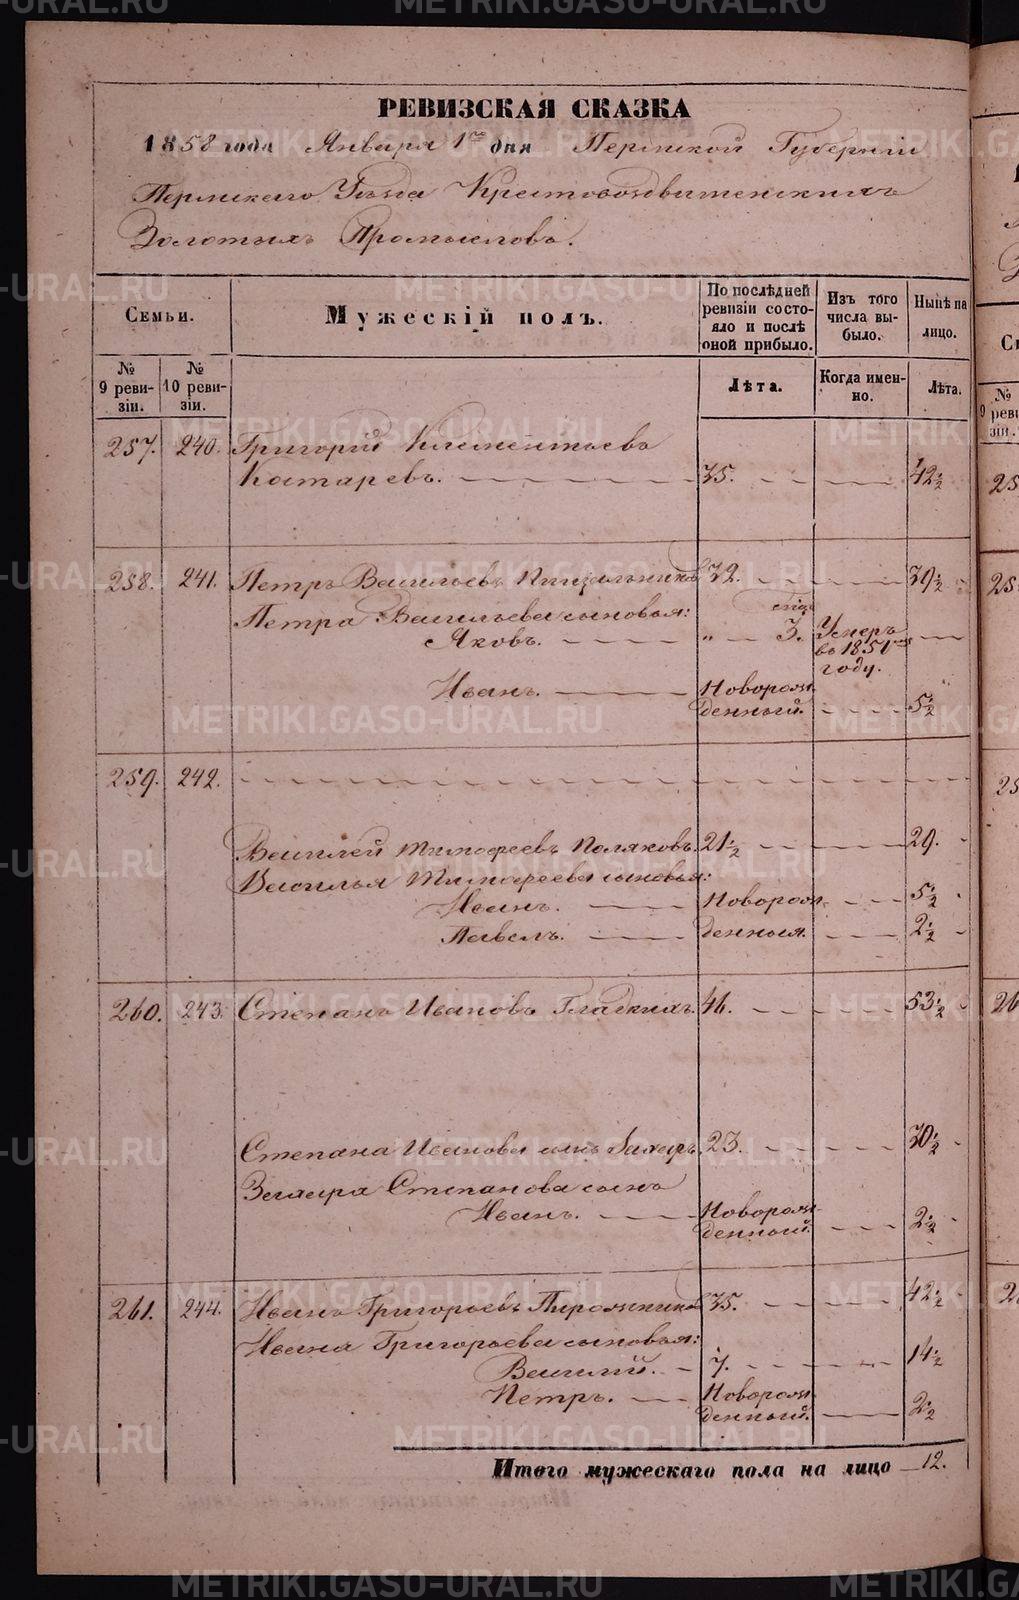 РЕВИЗСКАЯ СКАЗКА
1858 года Января 1го дня Пермской Губерніи
Пермскаго Уѣзда Крестовоздвиженскихъ
Золотыхъ Промысловъ.
Семьи.
Мужескій полъ.
По послѣдней ревизіи состояло и послѣ оной прибыло.
Изъ того числа выбыло.
Нынѣ на лицо.
№ 9 ревизіи.
№ 10 ревизіи.
Лѣта.
Когда именно.
Лѣта.
257. 240. Григорій Клементьевъ
Котаревъ. 35. 42½
258. 241. Петръ Васильевъ 32. 39½
Петра Васильева сыновья:
Яковъ. „ 3. Умеръ
въ 1851мъ
году.
Иванъ. Новорож-
денный. 5½
259. 242.
Василей Тимофеевъ Поляковъ. 21½ 29.
Василья Тимофеева сыновья:
Иванъ. Новорож- 5½
Павелъ. денныя. 2½
260. 243. Степанъ Ивановъ Гладкихъ. 46. 53½
Степана Иванова сынъ Захаръ. 23. 30½
Захара Степанова сынъ
Иванъ. Новорож-
денный. 2½
261. 244. Иванъ Григорьевъ Пирожниковъ 35. 42½
Ивана Григорьева сыновья:
Василій. 7. 14½
Петръ. Новорож-
денный. 2½
Итого мужескаго пола на лицо 12.
METRIKI.GASO-URAL.RU